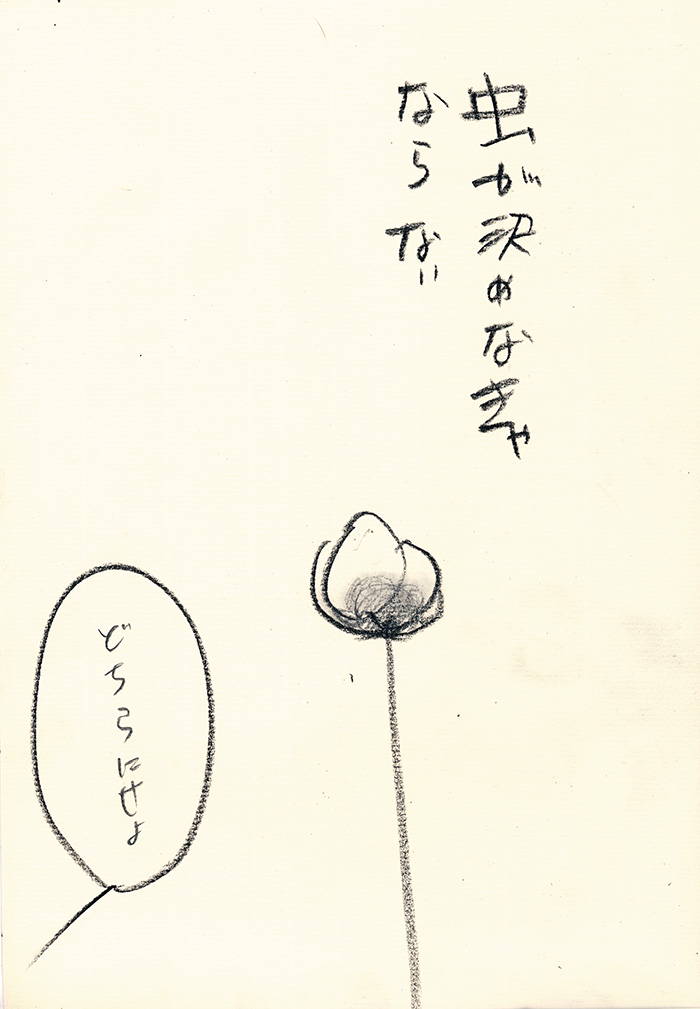 虫が決めなきゃ
ならない
どちらにせよ